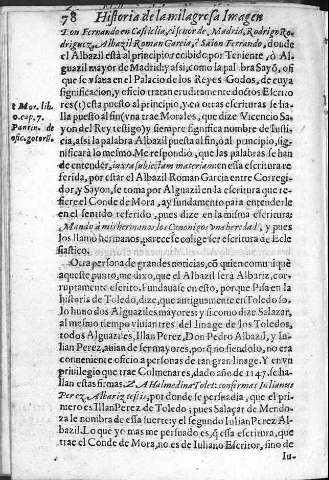 78 Historia de la milagrosa Imagen
Don Fernando en Castiella, el señor de Madrid, Rodrigo Ro-
driguez, Albazil Roman Garcia, è Saion Ferrando, donde
el Albazil està al principio recibido por Teniente, ò Al-
guazil mayor de Madrid; y assi, como la palabra Sayó, ofi
que se vsaua en el Palacio de los Reyes Godos, de cuya
significacion, y oficio tratan eruditamente doctos Escrito
res (t) esta puesto al principio, y en otras escrituras se ha-
lla puesto al fin (vna trae Morales, que dize Vicencio Sa-
yon del Rey testigo) y siempre significa nombre de Iusti-
cia, assi la palabra Albazil puesta al fin, ò al principio, sig-
nificarà lo mesmo. Me respondiò, que las palabras se han
de entender, iuxta subiectam materiam en esta escritura re
ferida, por estar el Albazil Roman Garcia entre Corregi-
dor, y Sayon, se toma por Alguazil en la escritura que re-
fiere el Conde de Mora, ay fundamento para entenderle
en el sentido referido, pues dize en la misma escritura:
Mando à mis hermanos los Canonigos vna heredad, y pues
los llamo hermanos, parece se colige ser escritura de Ecle
siastico.
t Mor. lib.
cap. 7.
Pantin. de
ofic. gotoru.
Otra persona de grandes noticias, cõ quien comuniquè
aqueste punto, me dixo, que el Albazil serà Albariz, cor-
ruptamente escrito. Fundauase en esto, porque Pisa en la
historia de Toledo, dize, que antiguamente en Toledo so-
lo huuo dos Alguaziles mayores; y si como dize Salazar,
al mesmo tiempo viuian tres del linage de los Toledos,
todos Alguaziles, Illan Perez, Don Pedro Albazil, y Iu-
lian Perez, auian de ser mayores, porq̃ no siendolo, no era
conueniente oficio a personas de tan gran linage. Y en vn
priuilegio que trae Colmenares, dado año de 1147. se ha-
llan estas firmas. Z. A Halmedina Tolet: confirmat Iulianus
Perez Albariz testis, por donde se persuadia, que el pri-
mero es Illan Perez de Toledo; pues Salaçar de Mendo-
za le nombra de essa suerte; y el segundo Iulian Perez Al-
bazil. Lo que yo mas me persuado es, q̃ essa escritura, que
trae el Conde de Mora, no es de Iuliano Escritor, sino de
Iu-